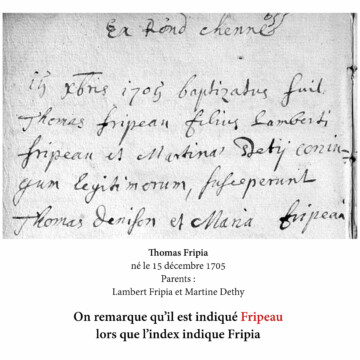 Ex Rond chenne
15 Xbris 1705 baptizatus fuit
Thomas fripeau filius Lamberti
fripeau et Martina Detij coniu-
gum legitimorum, susceperunt
Thomas Denison et Maria fripeau
Thomas Fripia
né le 15 décembre 1705
Parents :
Lambert Fripia et Martine Dethy
On remarque qu’il est indiqué Fripeau
lors que l’index indique Fripia